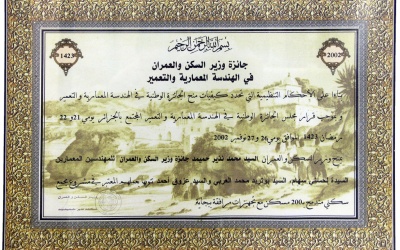 بسم الله الرحمن الرحيم
1423
2002
جائزة وزير السكن والعمران
في الهندسة المعمارية والتعمير
بناءا على الأحكام التنظيمية التي تحدد كيفيات منح الجائزة الوطنية في الهندسة المعمارية والتعمير
و بموجب قرار مجلس الجائزة الوطنية في الهندسة المعمارية والتعمير المجتمع بالجزائر يومي 21 و 22
رمضان 1423 الموافق يومي 26 و 27 نوفمبر 2002
منح وزير السكن والعمران السيد محمد نذير حميمد جائزة وزير السكن والعمران للمهندسين المعماريين
السيدة سهام، السيد بوزيد محمد العربي والسيد عزوق أحمد لعملهم المعتبر في مشروع مجمع
سكني مدمج بـ 200 مسكن مع تجهيزات مرافقة بجانة